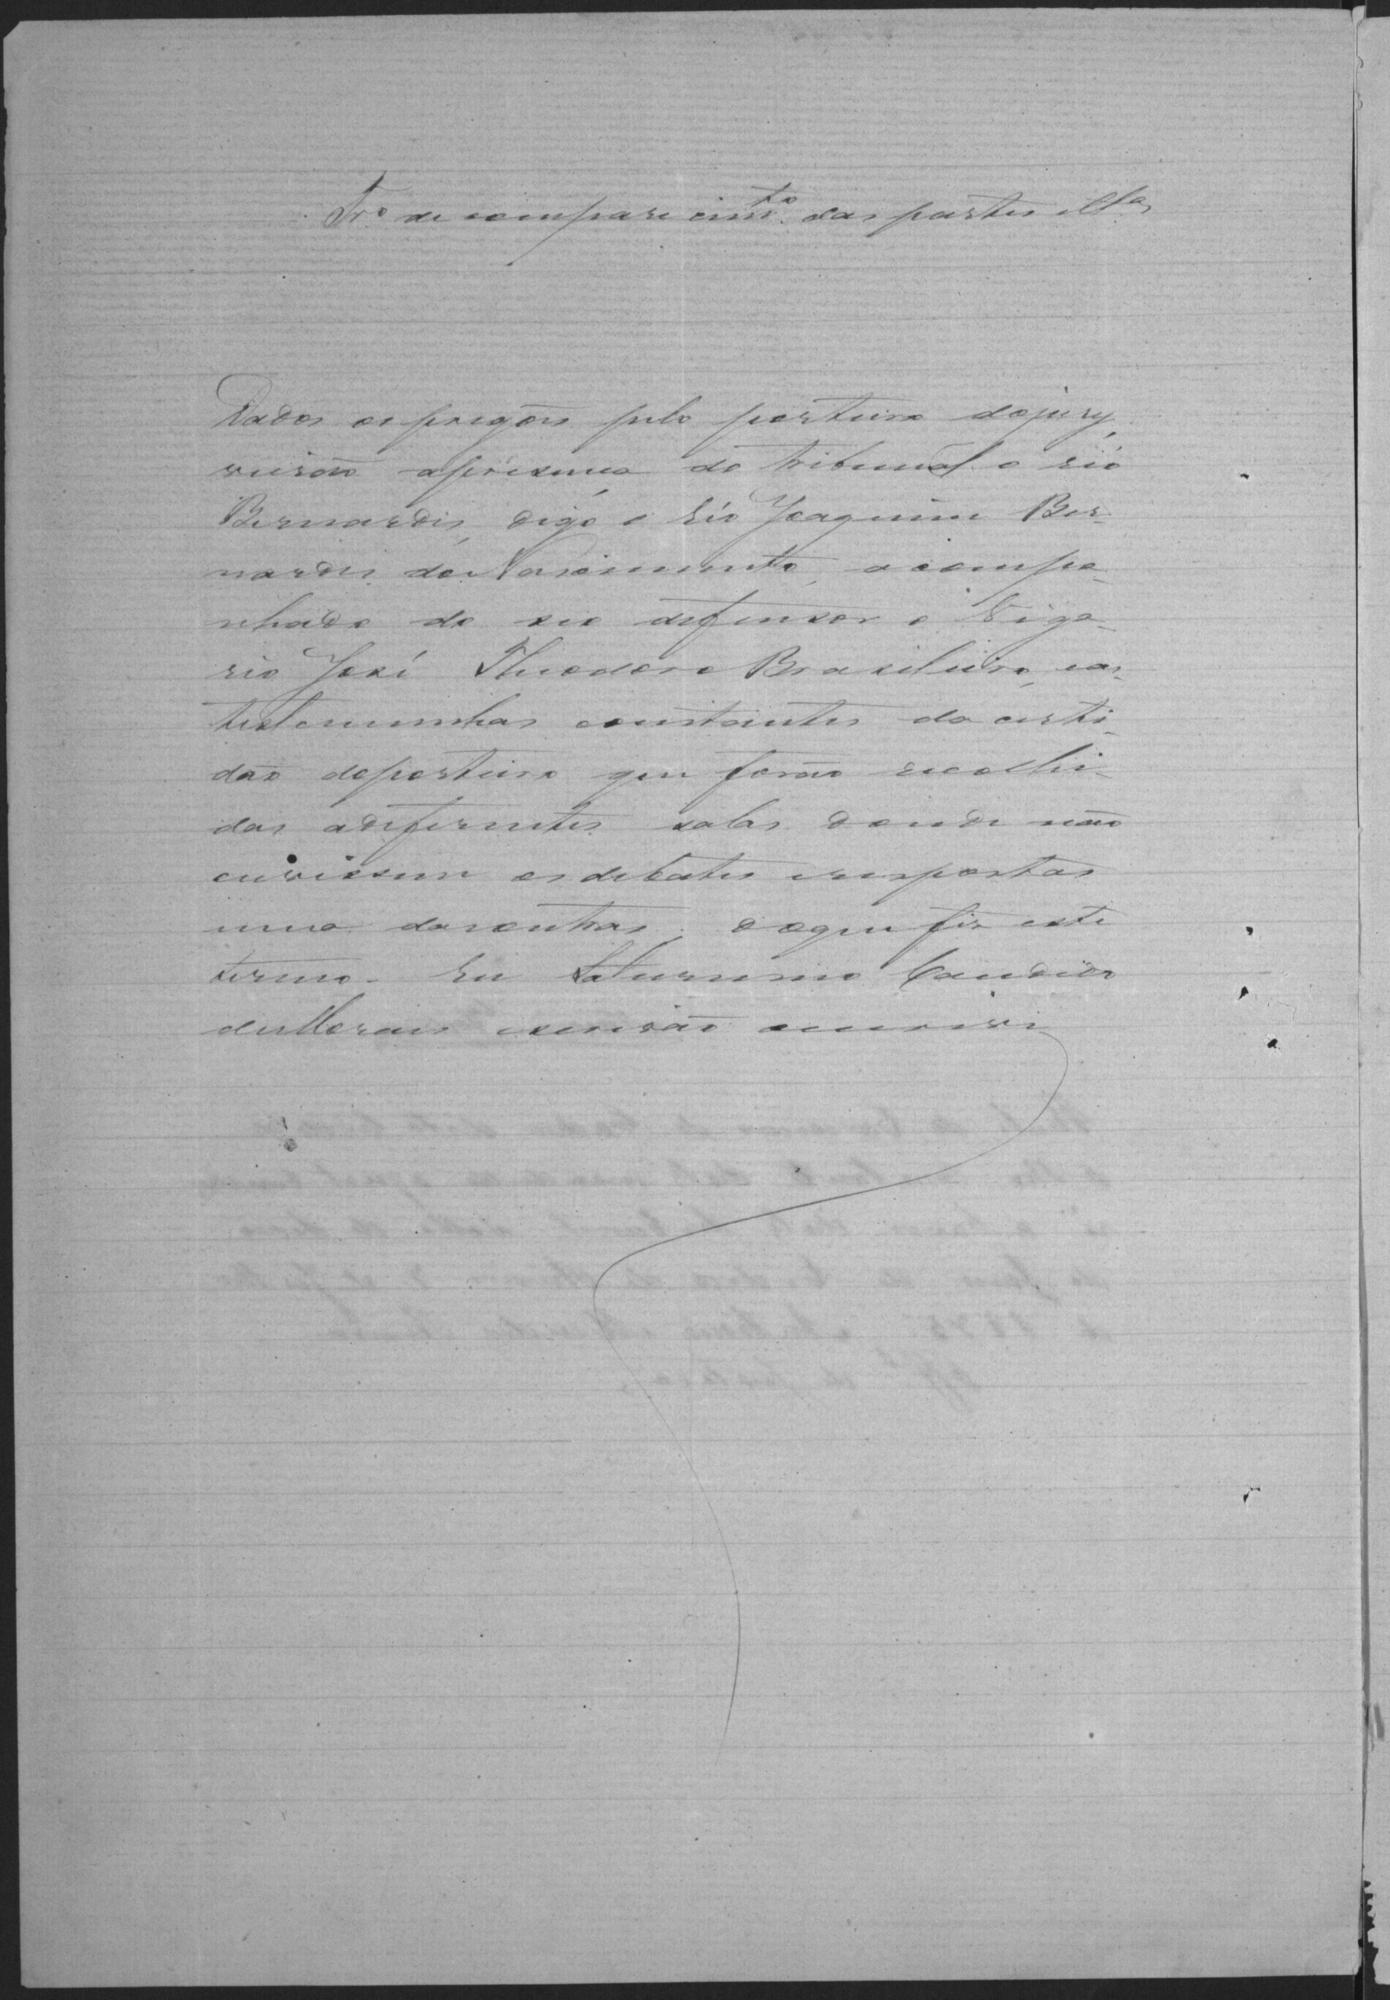 Tr.o de comparecim.to das partes e test.as
Dados os pregões pelo porteiro do jury,
vierão a presença do tribunal o réo
Bernardis, digo o réo Joaquim Ber-
nardis do Nascimento, acompa-
nhado do seo defensor o Viga-
rio José Theodoro Brasileiro, e as
testemunhas constantes da certi-
dão do porteiro que forão recolhi-
das a diferentes salas donde não
ouvissem os debates e respostas
umas das outras, do que fis este
termo. Eu Saturnino Candido
de Morais escrivão escrevi